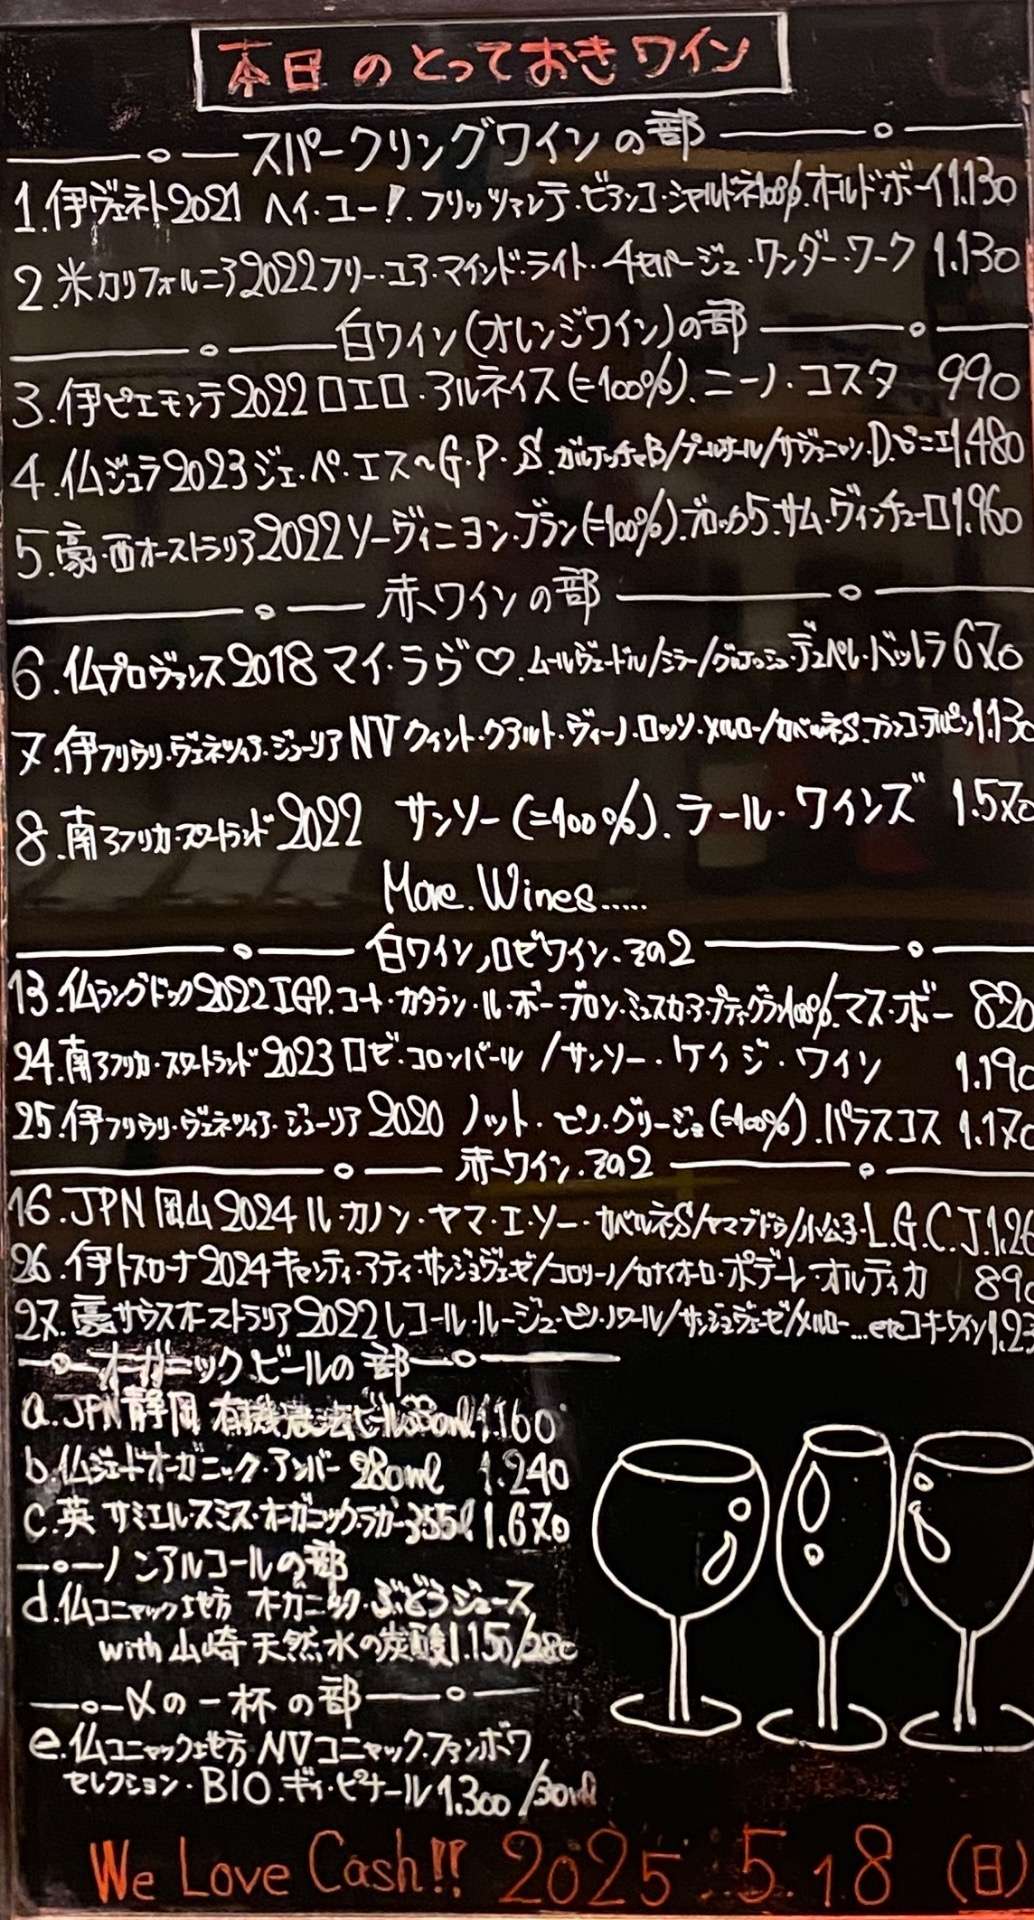 本日のとっておきワイン
スパークリングワインの部
1.伊ヴェネト2021 ヘイ・ユー!.フリッツァンテ・ビアンコ・シャルドネ100%.オールド・ボーイ1.130
2.米カリフォルニア2022フリー・ユア・マインド・ライト・4セパージュ・ワンダー・ワーク 1.130
白ワイン(オレンジワイン)の部
3.伊ピエモンテ2022ロエロ・アルネイス(=100%).ニーノ・コスタ 990
4.仏ジュラ2023ジェ・ペ・エス〜G.P.S.ガルアッチャB/プールサール/サヴァニャン.D.ビニエ1.480
5.豪・西オーストラリア2022ソーヴィニヨン・ブラン(=100%).ブロック5.サム・ヴィンチューロ1.960
赤ワインの部
6.仏プロヴァンス2018マイ・ラヴ♡.ムールヴェードル/シラー/グルナッシュ・デュペレ・バッレラ670
7.伊フリウリ・ヴェネツィア・ジューリアNVクイント・クアルト・ヴィーノ・ロッソ・メルロー/カベルネS.フランコ・テルピン1.130
8.南アフリカ・スワートランド2022 サンソー(=100%).ラール・ワインズ 1.570
More.Wines.....
白ワイン,ロゼワイン.その2
13.仏ラングドック2022IGP.コート・カタラン・ル・ボー・ブロン・ミュスカ・ア・プティ・グラン100%.マス・ボー 820
24.南アフリカ・スワートランド2023ロゼ・コロンバール/サンソー・ケイジ・ワイン 1.190
25.伊フリウリ・ヴェネツィア・ジューリア2020 ノット・ピノ・グリージョ(=100%).パラスコス 1.170
赤ワイン.その2
16.JPN岡山2024ル・カノン・ヤマ・エ・ソー・カベルネS/ヤマブドウ/小公子・L.G.C.J.1.26
26.伊トスカーナ2024キャンティ・アティ・サンジョヴェーゼ/コロリーノ/カナイオーロ・ポデーレ・オルティカ 890
27.豪サウスオーストラリア2022レコール・ルージュ・ピノ・ノワール/サンジョヴェーゼ/メルロー...etcコキーワイン1.23
オーガニックビールの部
a.JPN静岡 有機農法ビール330ml1.160
b.仏ジェードオーガニック・アンバー 280ml 1.240
c.英 サミエルスミス・オーガニックラガー355l 1.670
ノンアルコールの部
d.仏コニャック地方 オーガニック・ぶどうジュース
with山崎天然水の炭酸1.150/280
〆の一杯の部
e.仏コニャック地方NVコニャック・ファンボワ
セレクション・BIO.ギィ・ピナール1.300/30ml
We Love Cash!! 2025.5.18(日)